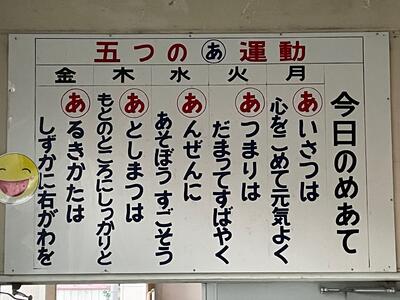 五つのあ運動
今日のめあて
月
あいさつは
心をこめて元気よく
火
あつまりは
だまってすばやく
水
あんぜんに
あそぼう すごそう
木
あとしまつは
もとのところにしっかりと
金
あるきかたは
しずかに右がわを